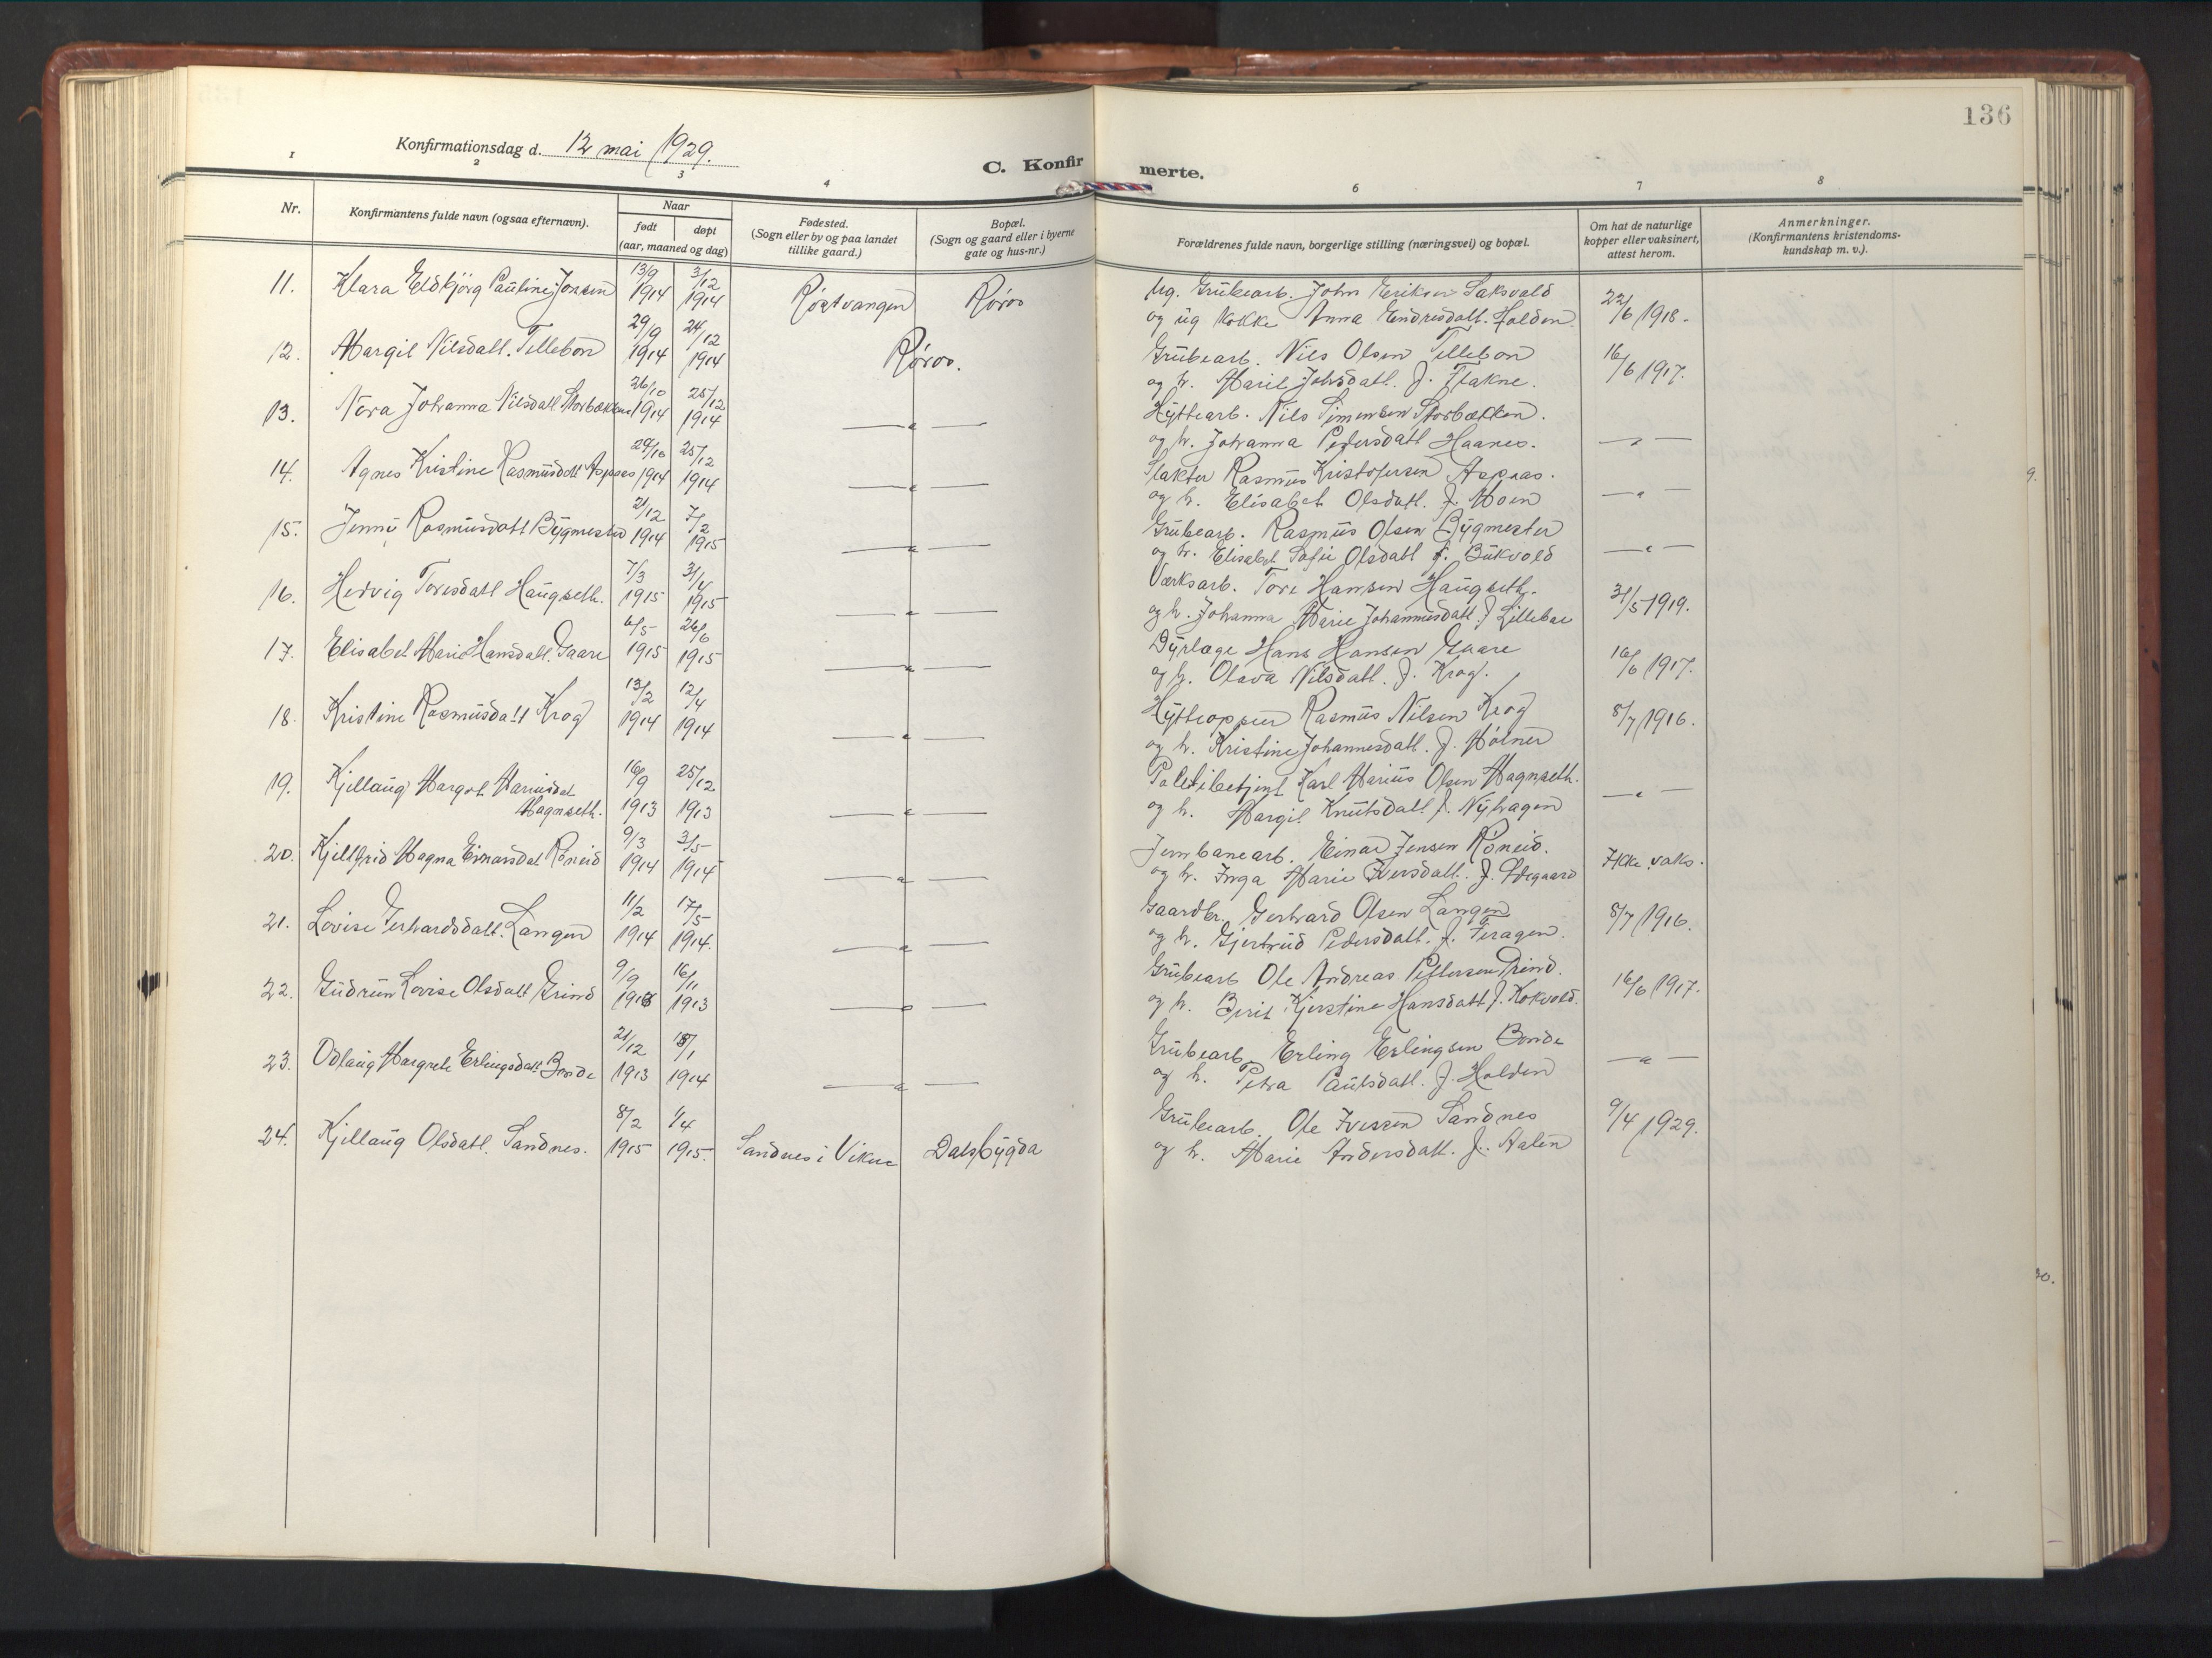 136
Konfirmationsdag d. 12 mai 1929.
C. Konfirmerte.
1 2 3 4 6 7 8
Nr.
Konfirmantens fulde navn (ogsaa efternavn).
Naar
født
døpt
(aar, maaned og dag)
Fødested.
(Sogn eller by og paa landet
tillike gaard.)
Bopæl.
(Sogn og gaard eller i byerne
gate og hus-nr.)
Forældrenes fulde navn, borgerlige stilling (næringsvei) og bopæl.
Om hat de naturlige
kopper eller vaksinert,
attest herom.
Anmerkninger.
(Konfirmantens kristendoms-
kundskap m. v.).
11. Klara Eldbjørg Pauline Jonsen 13/9 1914 3/12 1914 Røstvangen Røros
Ug. Grubearb. John Eriksen Saksvold
og ug kokke Anna Endresdatt. Holden 22/6 1918.
12. Margit Nilsdatt. Tellebon 29/9 1914 24/12 1914 Røros.
Grubearb. Nils Olsen Tellebon
og h. Marit Johsdatt. f. Flakne. 16/6 1917.
13. Nora Johanna Nilsdatt Storbækken 26/10 1914 25/12 1914 — " —
Hyttearb. Nils Simensen Storbækken.
og h. Johanna Pedersdatt Haanes. — " —
14. Agnes Kristine Rasmusdatt Aspaas 29/10 1914 25/12 1914 — " —
Slakter Rasmus Kristofersen Aspaas.
og h. Elisabet Olsdatt. f. Moen — " —
15. Jenny Rasmusdatt Bygmester 21/12 1914 7/2 1915 — " —
Grubearb. Rasmus Olsen Bygmester
og h. Elisabet Sofie Olsdatt f. Bukvold — " —
16. Hedvig Toresdatt Haugseth. 7/3 1915 3/4 1915 — " —
Værksarb. Tore Hansen Haugseth.
og h. Johanna Marie Johannesdatt. f. Lillebae 31/5 1919.
17. Elisabet Marie Hansdatt. Gaare 6/5 1915 26/6 1915 — " —
Dyrlæge Hans Hansen Gaare
og h. Olava Nilsdatt. f. Krog. 16/6 1917.
18. Kristine Rasmusdatt Krog 13/2 1914 12/4 1914 — " —
Hytteopper Rasmus Nilsen Krog
og h. Kristine Johannesdatt. f. Mølner 8/7 1916.
19. Kjellaug Margot Mariusdat 16/9 1913 25/12 1913 — " —
Magnseth.
Politibetjent Karl Marius Olsen Magnseth.
og h. Margit Knutsdatt. f. Nyhagen — " —
20. Kjellfrid Magna Einarsdat Røneid 9/3 1914 3/5 1914 — " —
Jernbanearb. Einar Jensen Røneid.
og h. Inga Marie Iversdatt. f. Ødegaard Ikke vaks.
21. Lovise Gerhardsdatt. Langen 11/2 1914 17/5 1914. — " —
Gaardbr. Gerhard Olsen Langen
og h. Gjertrud Pedersdatt. f. Feragen. 8/7 1916.
22. Gudrun Lovise Olsdatt Grind 9/9 1913 16/11 1913 — " —
Grubearb Ole Andreas Pettersen Grind.
og h. Berit Kjerstine Hansdatt f. Kokvold. 16/6 1917.
23. Odlaug Margrete Erlingsdatt Bonde 21/12 1913 18/1 1914 — " —
Grubearb. Erling Erlingsen Bonde
og h. Petra Paulsdatt. f. Holden — " —
24. Kjellaug Olsdatt. Sandnes. 8/2 1915 1/4 1915. Sandnes i Vikne Dalsbygda
Grubearb. Ole Iversen Sandnes
og h. Marie Andersdatt. f. Aalen 9/4 1929.